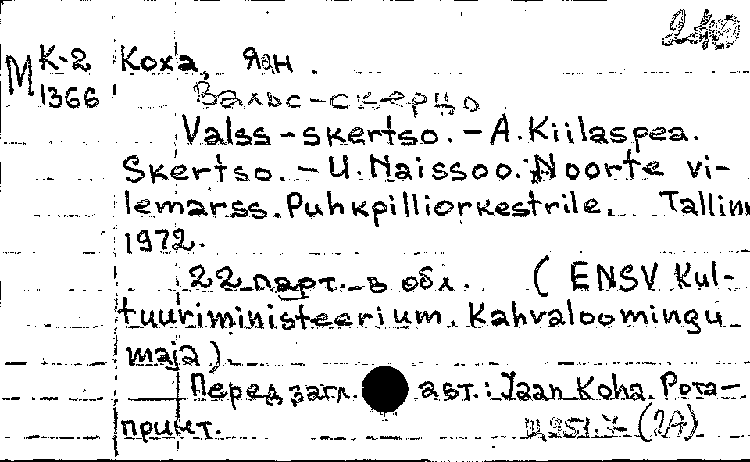 240
М К-2 Коха, Яан.
1366
Вальс-скерцо
Valss-skertso. - A. Kiilaspea.
Skertso. - U. Naissoo. Noorte vi-
lemarss. Puhkpilliorkestrile. Tallinn
1972.
22 парт. в обл. (ENSV Kul-
tuuriministeerium. Kahvaloomingu
maja).
Перед загл. авт.: Jaan Koha. Рота-
принт.
(2А)